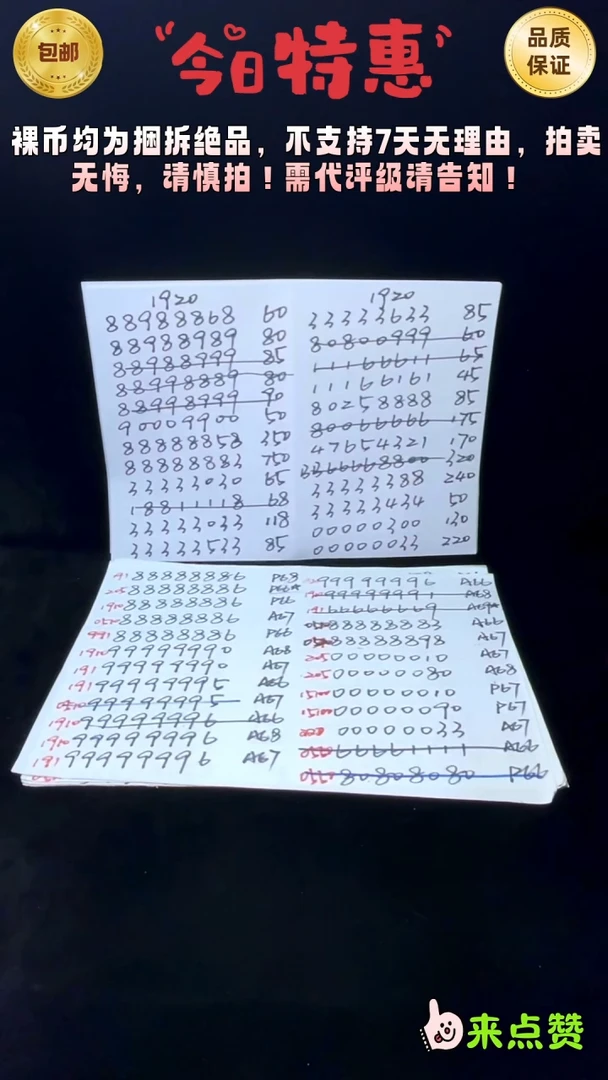 包邮
今日特惠
品质
保证
裸币均为捆拆绝品，不支持7天无理由，拍卖
无悔，请慎拍！需代评级请告知！
1920
88988868 60
88988989 80
88988999 85
88998889 80
88998999 90
90009900 50
88888858 350
88888883 750
33333030 65
18811118 68
33333033 118
33333533 85
1920
33333633 85
80800999 60
11166611 65
11166161 45
80258888 85
80066666 175
47654321 170
3366668800 320
33333388 240
33333434 50
00000300 130
00000033 220
191 88888886 P68
205 88888886
1910 88888886 P66
050 88888886 A67
991 88888886 P66
1910 99999990 A68
191 99999990 A67
191 99999995 A66
0510 99999995 A67
1910 99999996 A66
1910 99999996 A68
191 99999996 A67
99999996 A66
99999991 A68
66666669
88888883 A66
88888898 A67
205 00000010 A67
205 00000080 A68
1510 00000010 P67
1510 00000090 P67
00000033 A67
66661111 A66
80808080 P66
来点赞